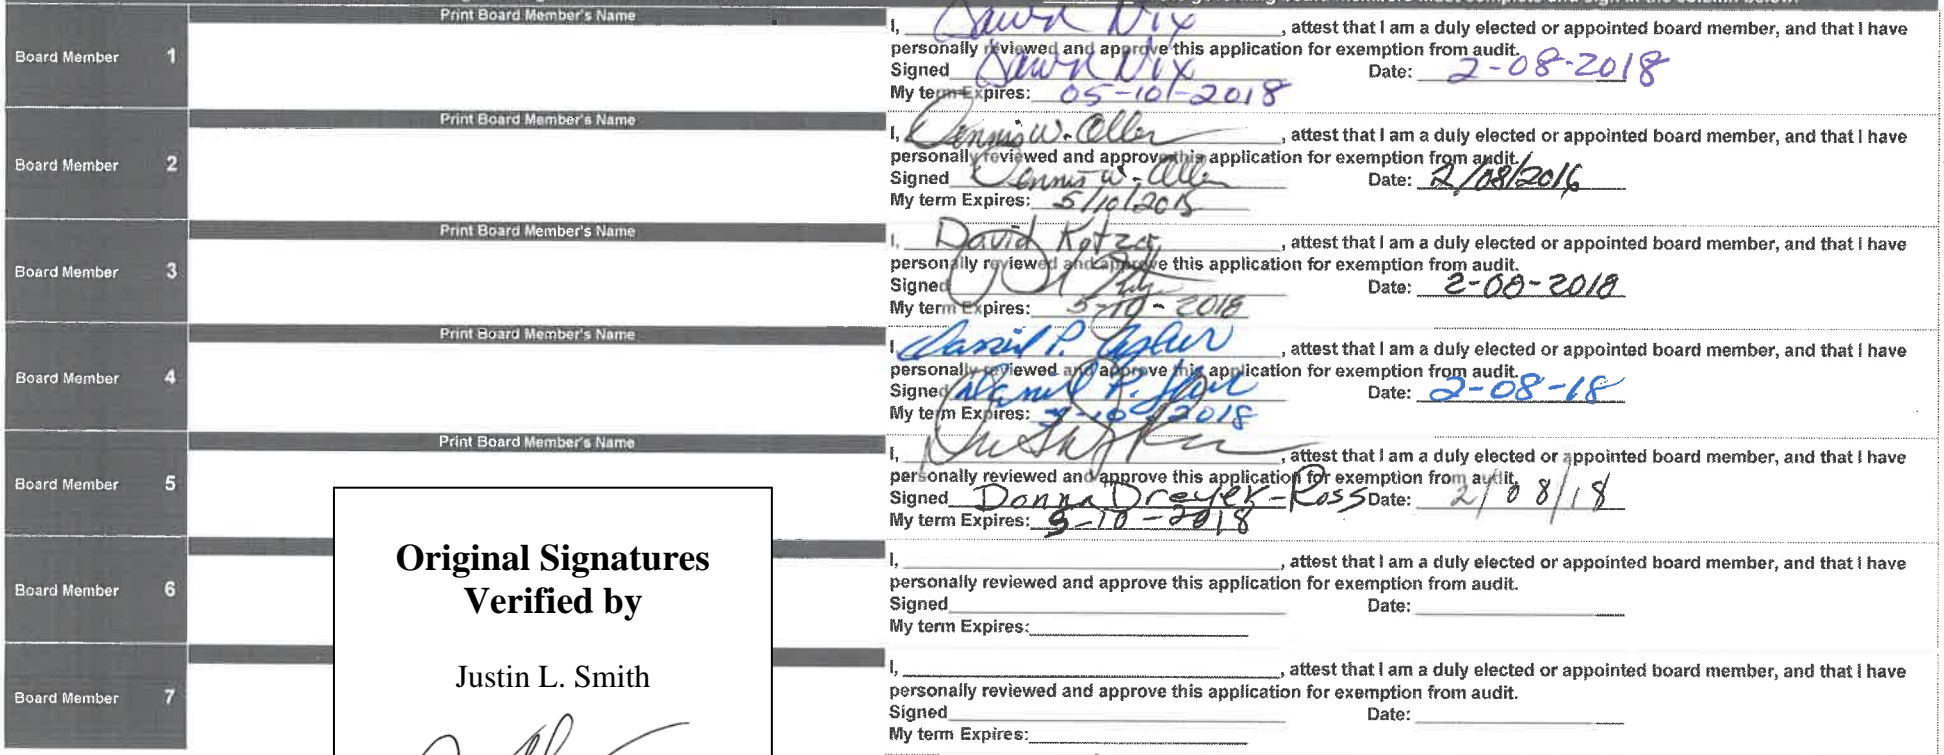 Print Board Member's Name
Board Member 1
I, Dawn Nix, attest that I am a duly elected or appointed board member, and that I have
personally reviewed and approve this application for exemption from audit.
Signed Dawn Nix Date: 2-08-2018
My term Expires: 05-10-2018
Print Board Member's Name
Board Member 2
I, Dennis W. , attest that I am a duly elected or appointed board member, and that I have
personally reviewed and approve this application for exemption from audit.
Signed Dennis W. Date: 2/08/2016
My term Expires: 5/10/201
Print Board Member's Name
Board Member 3
I, David , attest that I am a duly elected or appointed board member, and that I have
personally reviewed and approve this application for exemption from audit.
Signed Date: 2-08-2018
My term Expires: 5-10-2018
Print Board Member's Name
Board Member 4
I, Daniel P. , attest that I am a duly elected or appointed board member, and that I have
personally reviewed and approve this application for exemption from audit.
Signed Daniel P. Date: 2-08-18
My term Expires: 2018
Print Board Member's Name
Board Member 5
I, , attest that I am a duly elected or appointed board member, and that I have
personally reviewed and approve this application for exemption from audit.
Signed Donna Dreyer-Ross Date: 2/08/18
My term Expires: 5-10-2018
Board Member 6
I, , attest that I am a duly elected or appointed board member, and that I have
personally reviewed and approve this application for exemption from audit.
Signed Date:
My term Expires:
Board Member 7
I, , attest that I am a duly elected or appointed board member, and that I have
personally reviewed and approve this application for exemption from audit.
Signed Date:
My term Expires:
Original Signatures
Verified by
Justin L. Smith